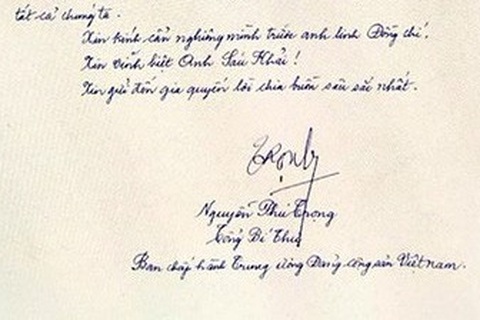 tất cả chúng ta.
Xin kính cẩn nghiêng mình trước anh linh Đồng chí.
Xin vĩnh biệt Anh Sáu Khải!
Xin gửi đến gia quyến lời chia buồn sâu sắc nhất.
Trọng
Nguyễn Phú Trọng
Tổng Bí Thư
Ban chấp hành Trung ương Đảng cộng sản Việt nam.